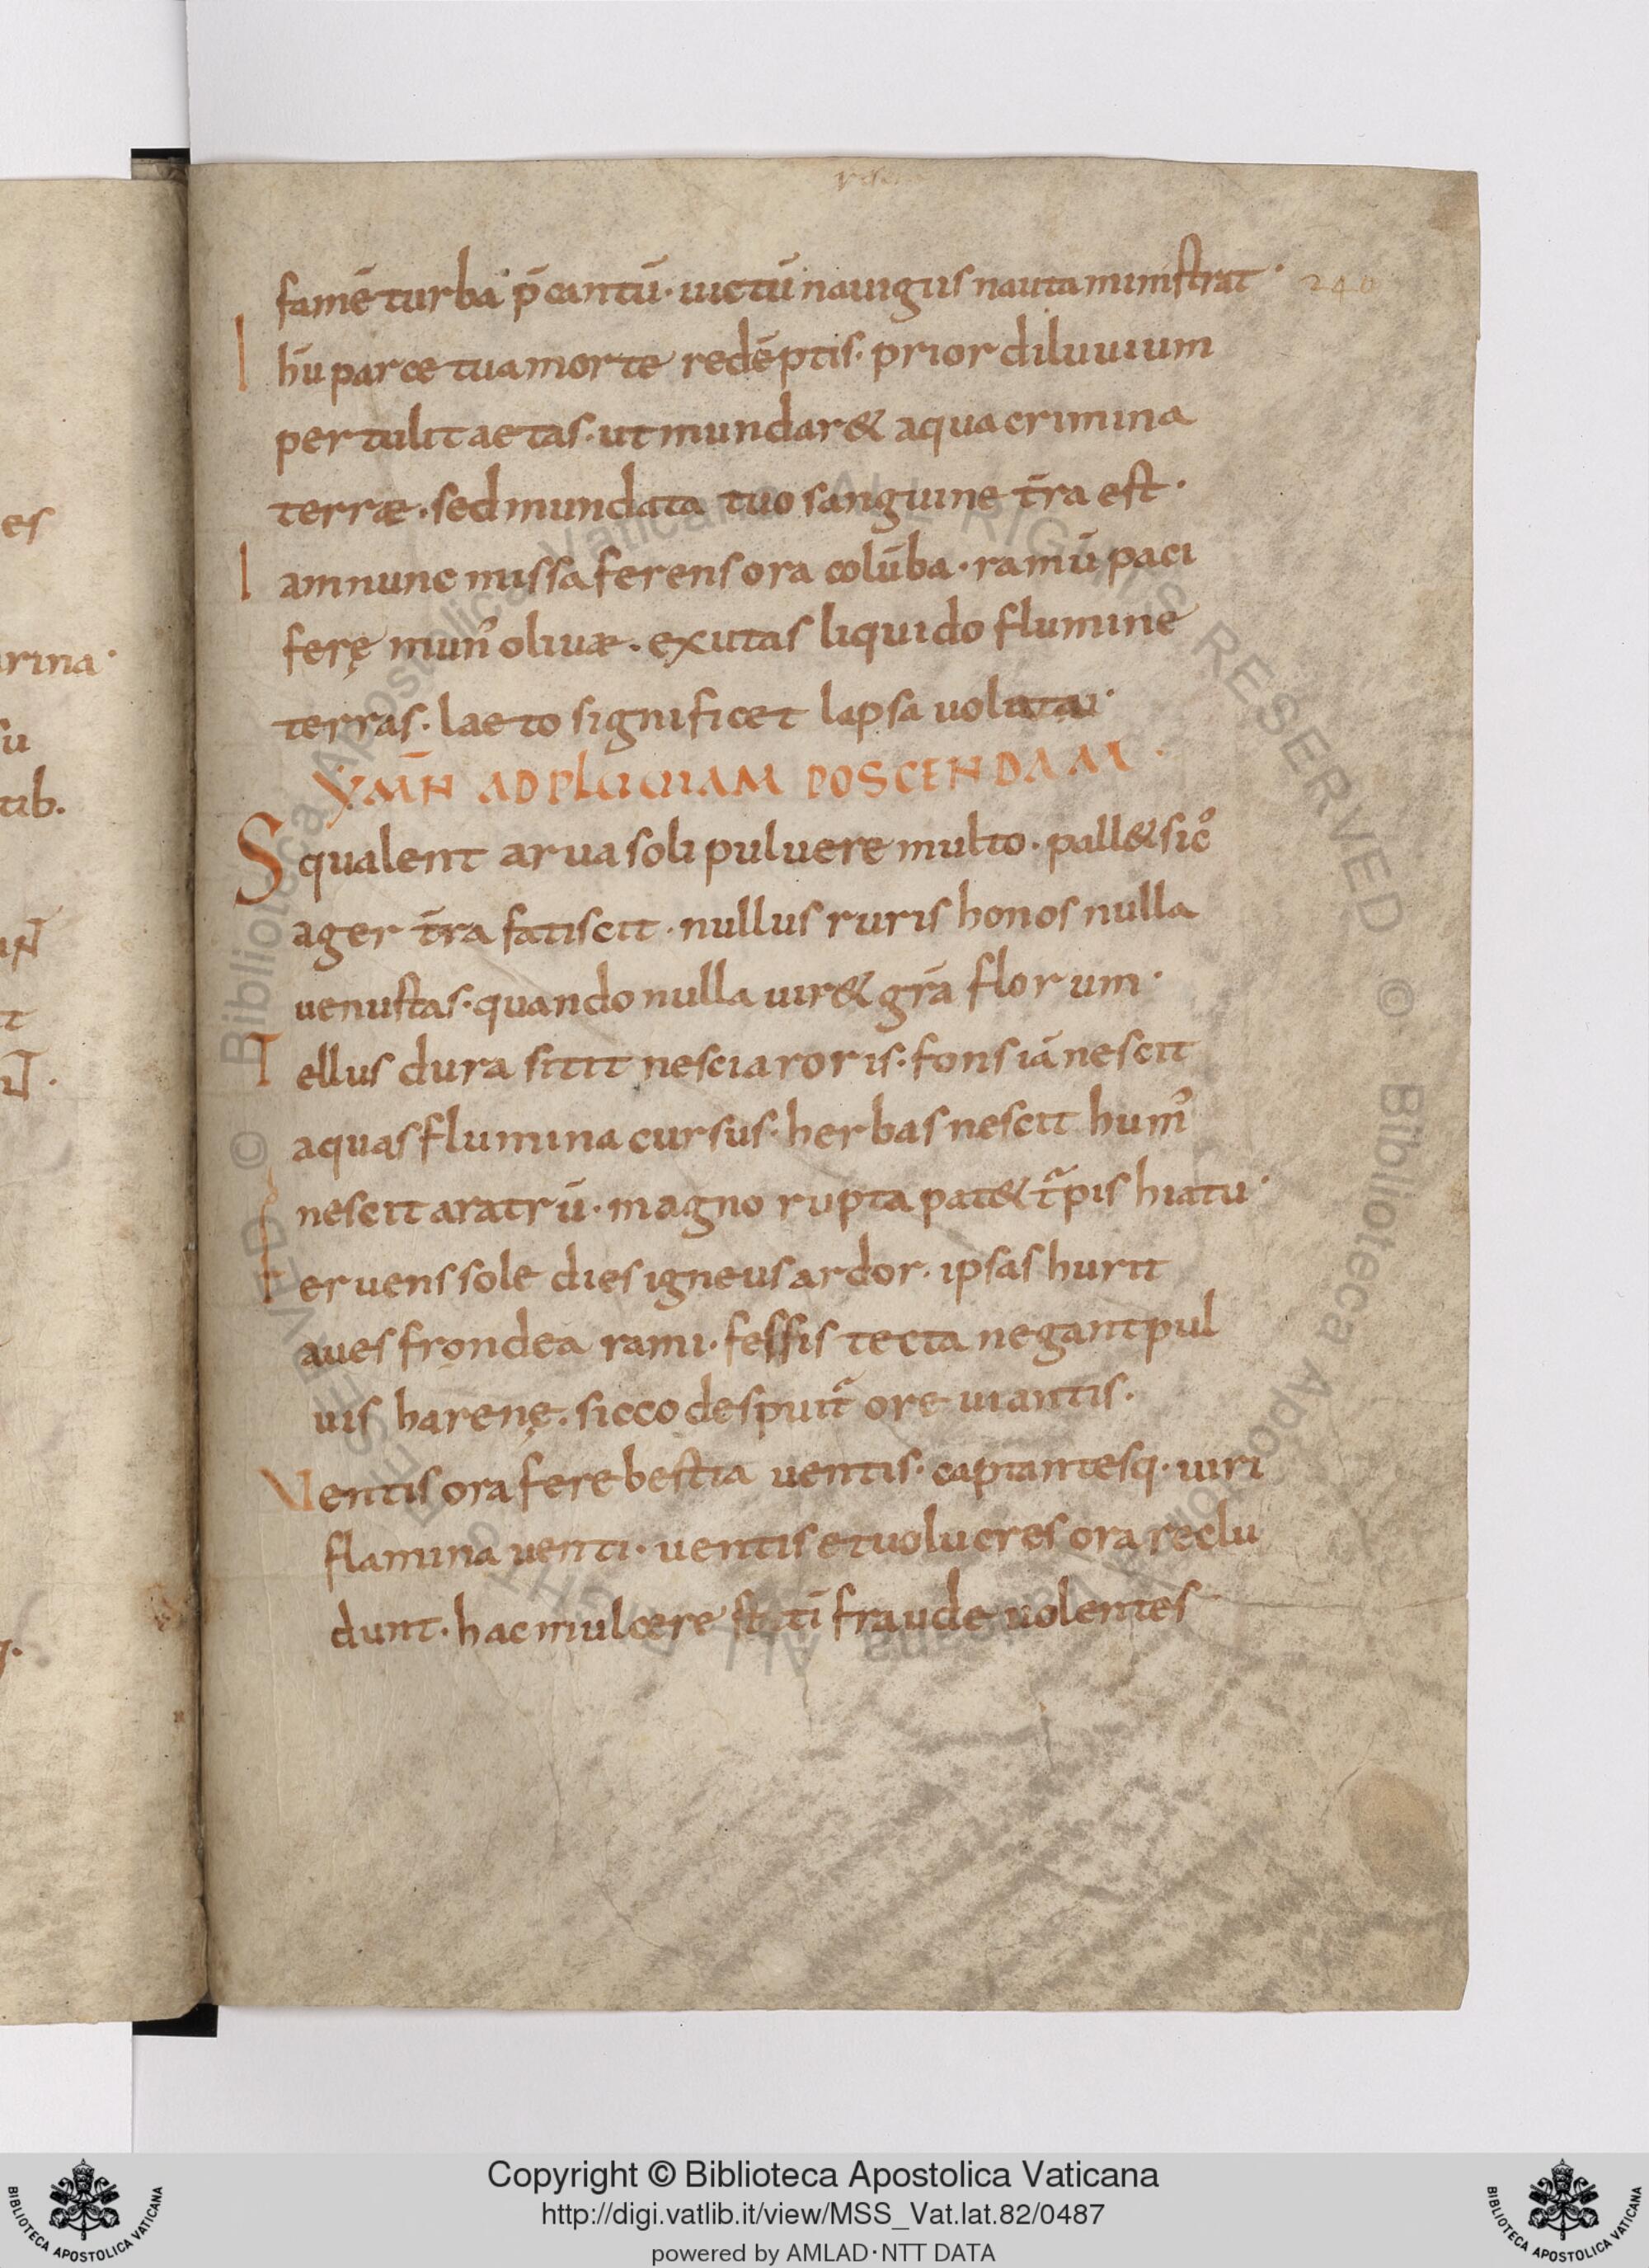 famē turba p̄cantū· uictū nauigiis nauta ministrat· 240
I hu parce tua morte redēptis· prior diluuium
pertulit aetas· ut mundar& aqua crimina
terræ· sed mundata tuo sanguine t̄ra est·
I am nunc missa ferens ora colūba· ramū paci
ferę mun᾽ oliuæ· exutas liquido flumine
terras· laeto significet lapsa uolatu·
YMN̄ AD PLUUIAM POSCENDAM·
S qualent arua soli puluere multo· pall& sicc᾽
ager t̄ra fatiscit· nullus ruris honos nulla
uenustas· quando nulla uir& gr̄a florum·
T ellus dura sitit nescia roris· fons iā nescit
aquas flumina cursus· herbas nescit hum᾽
nescit aratrū· magno rupta pat& t᾽pis hiatu·
F eruens sole dies igneus ardor· ipsas hurit
aues frondea rami· fessis tecta negant pul
uis harenę· sicco despuit᾽ ore uiantis·
V entis ora fere bestia uentis· captantesq· uiri
flamina uenti· uentis et uolucres ora reclu
dunt· hac mulcere sitī fraude uolentes
es
rina·
su
tib.
t
© Biblioteca Apostolica Vaticana ALL RIGHTS RESERVED
© Biblioteca Apostolica Vaticana ALL RIGHTS RESERVED
Copyright © Biblioteca Apostolica Vaticana
http://digi.vatlib.it/view/MSS_Vat.lat.82/0487
powered by AMLAD·NTT DATA
BIBLIOTECA APOSTOLICA VATICANA
BIBLIOTECA APOSTOLICA VATICANA